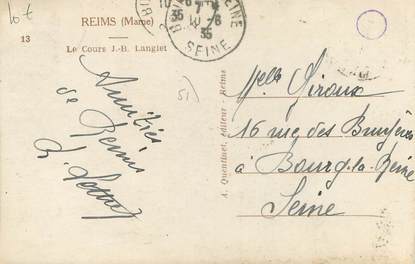 REIMS (Marne)
13
Le Cours J.-B. Langlet
10€
35
10-6
35
SEINE
51)
Amitiés
de Reims
A. Quentinet, éditeur - Reims
Melle Giroux
16 rue des Bruyères
à Bourg-la-Reine
Seine